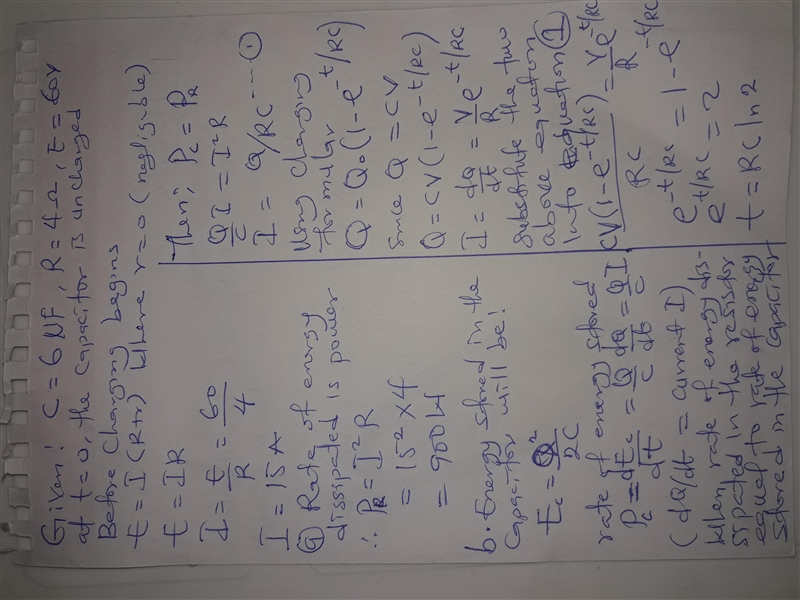 Given: C = 6 µF, R = 4Ω, E = 60V
at t=0, the capacitor is uncharged
Before charging begins
E = I(R+r) where r=0 (negligible)
E = IR
I = E/R = 60/4
I = 15A
(a) Rate of energy
dissipated is power
∴ PR = I²R
= 15² x 4
= 900 W
b. Energy stored in the
capacitor will be:
Ec = Q²/2C
rate of energy stored
Pc = dEc/dt = Q/C dQ/dt = QI/C
(dQ/dt = current I)
When rate of energy dis-
sipated in the resistor
equal to rate of energy
stored in the capacitor
Then; Pc = PR
QI/C = I²R
I = Q/RC --- (1)
Using charging
formular
Q = Q₀(1-e^-t/RC)
Since Q = CV
Q = CV(1-e^-t/RC)
I = dQ/dt = V/R e^-t/RC
Substitute the two
above equation
into equation (1)
CV(1-e^-t/RC)/RC = V/R e^-t/RC
e^-t/RC = 1-e^-t/RC
e^t/RC = 2
t = RC ln 2